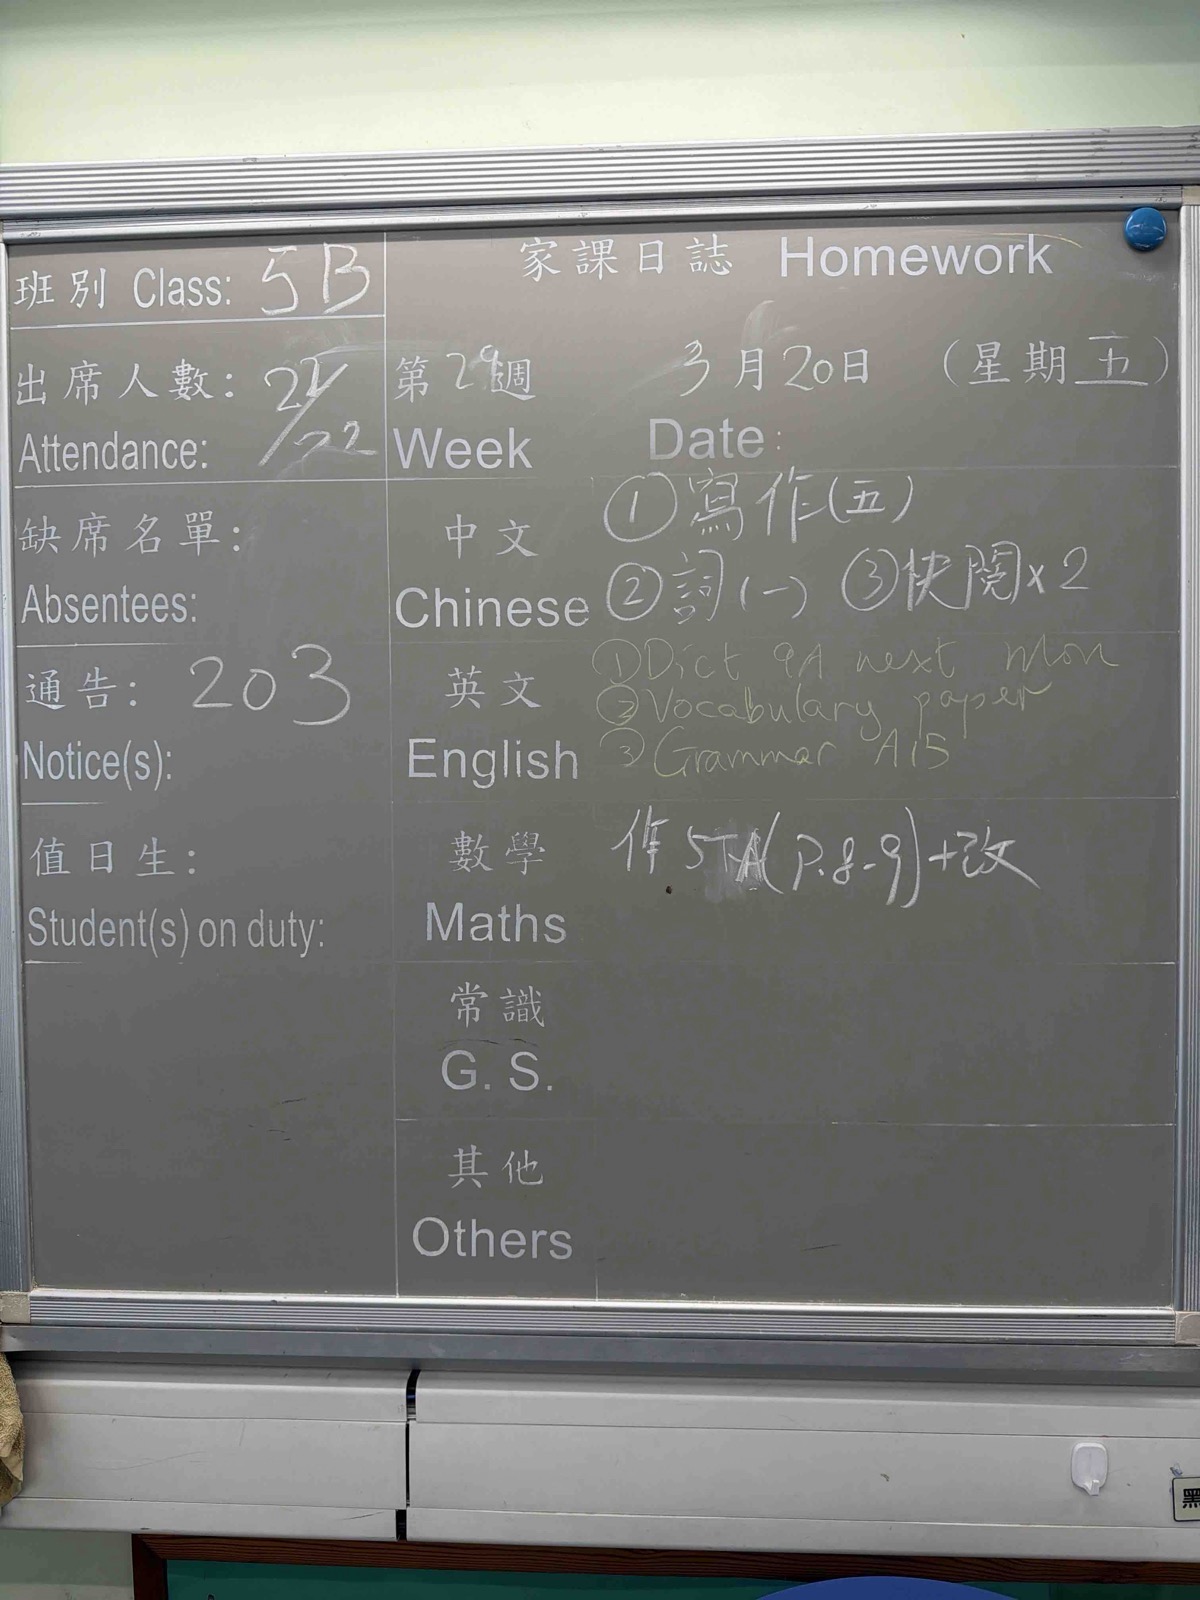 班別 Class: 5B
出席人數: 22/22
Attendance:
缺席名單:
Absentees:
通告: 203
Notice(s):
值日生:
Student(s) on duty:
家課日誌 Homework
第29週 3月20日 (星期五)
Week Date:
中文 ①寫作(五)
Chinese ②詞(一) ③快閱x2
英文 ①Dict 9A next Mon
②Vocabulary paper
English ③Grammar A15
數學 作5TA(P.8-9)+改
Maths
常識
G. S.
其他
Others
黑